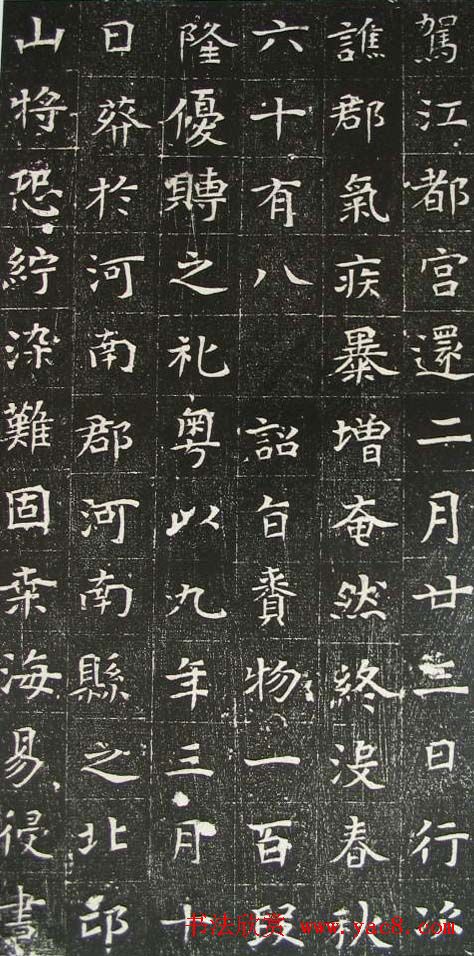 駕江都宮還二月廿三日行次
譙郡氣疾暴增奄然終没春秋
六十有八 詔旨賚物一百段
隆優賻之礼粤以九年三月十
日葬於河南郡河南縣之北邙
山將恐紵染難固桒海易侵書
书法欣赏 www.yac8.com